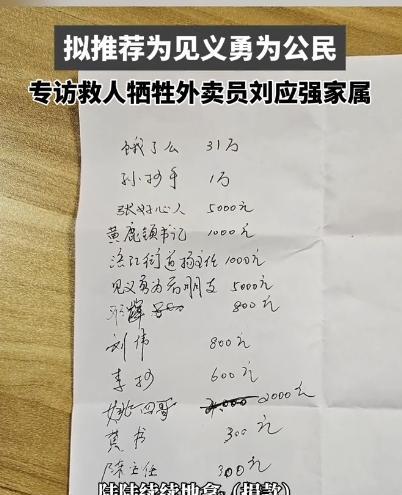 拟推荐为见义勇为公民
专访救人牺牲外卖员刘应强家属
饿了么 31万
孙抄手 1万
张好心人 5000元
黄鹿镇书记 1000元
街道杨主任 1000元
见义勇为 朋友 5000元
800元
刘伟 800元
李抄 600元
姚四哥 2000元
300元
陈主任 300元
陆陆续续地拿（捐款）